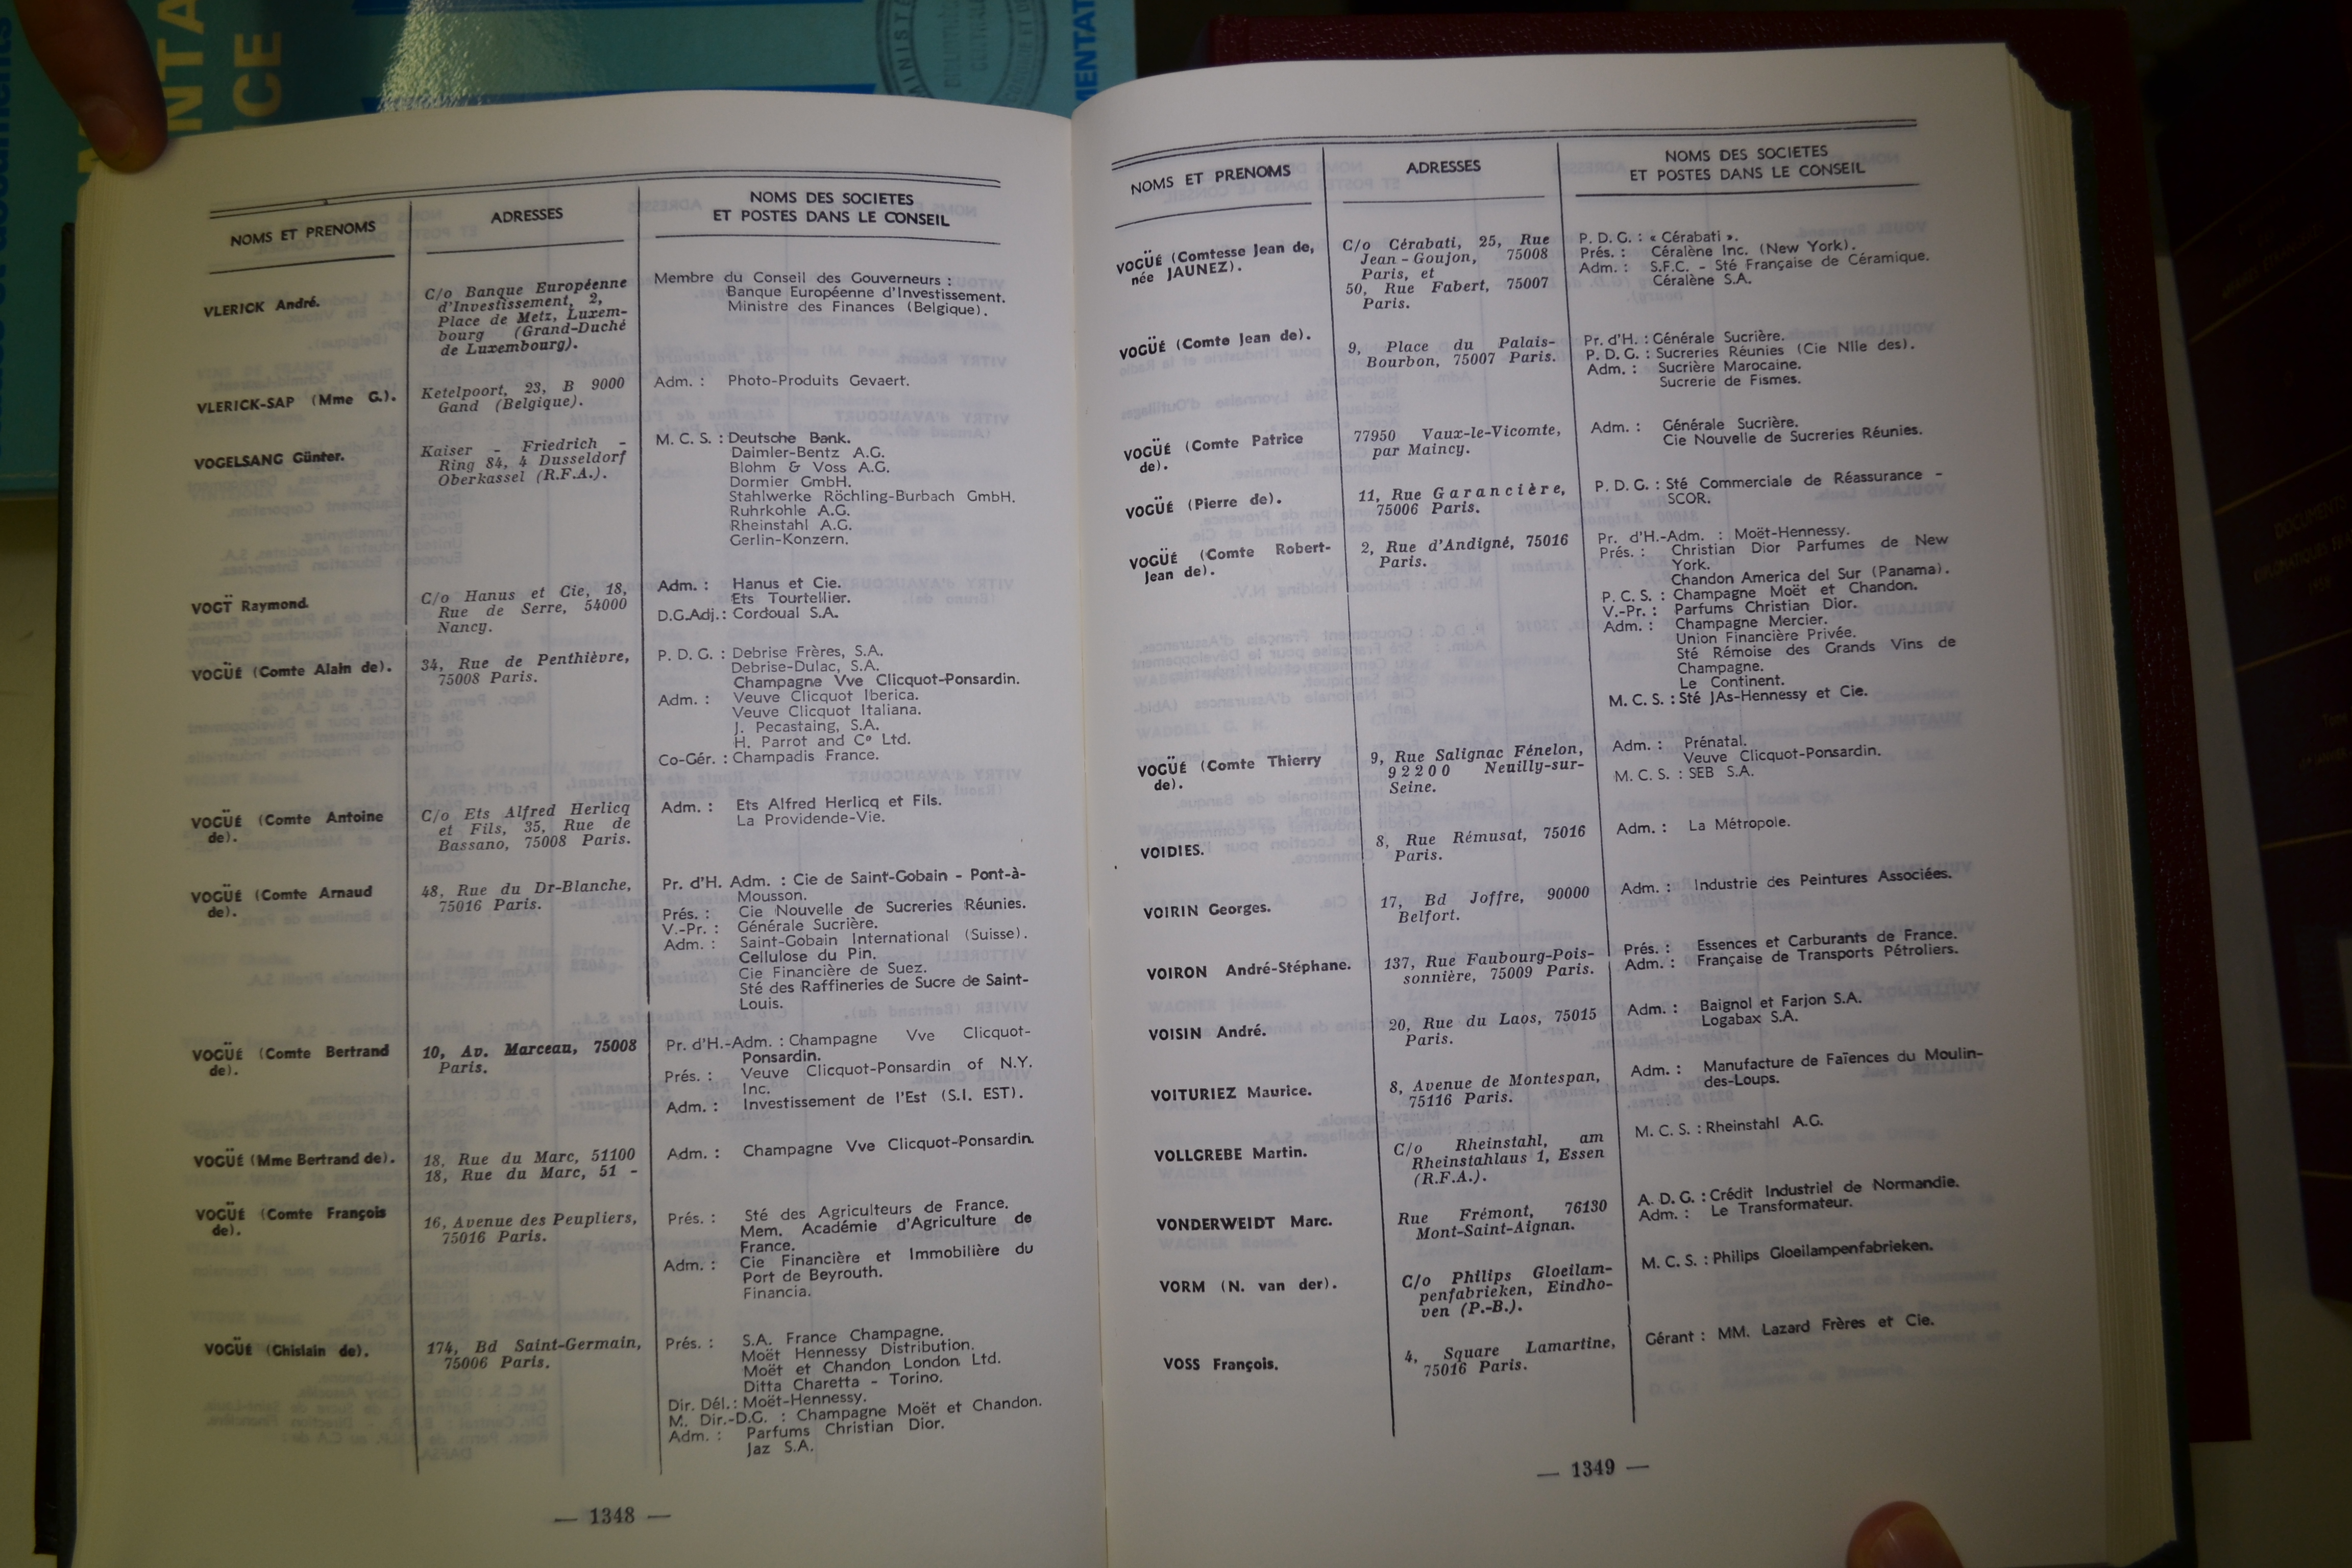 NTA
ICE
MENTAT
MINISTÈ
— 1348 —
NOMS ET PRENOMS
ADRESSES
NOMS DES SOCIETES
ET POSTES DANS LE CONSEIL
VLERICK André.
C/o Banque Européenne
d'Investissement, 2,
Place de Metz, Luxem-
bourg (Grand-Duché
de Luxembourg).
Membre du Conseil des Gouverneurs :
Banque Européenne d'Investissement.
Ministre des Finances (Belgique).
VLERICK-SAP (Mme G.).
Ketelpoort, 23, B 9000
Gand (Belgique).
Adm. : Photo-Produits Gevaert.
VOGELSANG Günter.
Kaiser - Friedrich -
Ring 84, 4 Dusseldorf
Oberkassel (R.F.A.).
M. C. S. : Deutsche Bank.
Daimler-Bentz A.G.
Blohm & Voss A.G.
Dormier GmbH.
Stahlwerke Röchling-Burbach GmbH.
Ruhrkohle A.G.
Rheinstahl A.G.
Gerlin-Konzern.
VOGT Raymond.
C/o Hanus et Cie, 18,
Rue de Serre, 54000
Nancy.
Adm. : Hanus et Cie.
Ets Tourtellier.
D.G.Adj. : Cordoual S.A.
VOGÜÉ (Comte Alain de).
34, Rue de Penthièvre,
75008 Paris.
P. D. G. : Debrise Frères, S.A.
Debrise-Dulac, S.A.
Champagne Vve Clicquot-Ponsardin.
Adm. : Veuve Clicquot Iberica.
Veuve Clicquot Italiana.
J. Pecastaing, S.A.
H. Parrot and C° Ltd.
Co-Gér. : Champadis France.
VOGÜÉ (Comte Antoine
de).
C/o Ets Alfred Herlicq
et Fils, 35, Rue de
Bassano, 75008 Paris.
Adm. : Ets Alfred Herlicq et Fils.
La Providende-Vie.
VOGÜÉ (Comte Arnaud
de).
48, Rue du Dr-Blanche,
75016 Paris.
Pr. d'H. Adm. : Cie de Saint-Gobain - Pont-à-
Mousson.
Prés. : Cie Nouvelle de Sucreries Réunies.
V.-Pr. : Générale Sucrière.
Adm. : Saint-Gobain International (Suisse).
Cellulose du Pin.
Cie Financière de Suez.
Sté des Raffineries de Sucre de Saint-
Louis.
VOGÜÉ (Comte Bertrand
de).
10, Av. Marceau, 75008
Paris.
Pr. d'H.-Adm. : Champagne Vve Clicquot-
Ponsardin.
Prés. : Veuve Clicquot-Ponsardin of N.Y.
Inc.
Adm. : Investissement de l'Est (S.I. EST).
VOGÜÉ (Mme Bertrand de).
18, Rue du Marc, 51100
18, Rue du Marc, 51 -
Adm. : Champagne Vve Clicquot-Ponsardin.
VOGÜÉ (Comte François
de).
16, Avenue des Peupliers,
75016 Paris.
Prés. : Sté des Agriculteurs de France.
Mem. Académie d'Agriculture de
France.
Adm. : Cie Financière et Immobilière du
Port de Beyrouth.
Financia.
VOGÜÉ (Ghislain de).
174, Bd Saint-Germain,
75006 Paris.
Prés. : S.A. France Champagne.
Moët Hennessy Distribution.
Moët et Chandon London Ltd.
Ditta Charetta - Torino.
Dir. Dél. : Moët-Hennessy.
M. Dir.-D.G. : Champagne Moët et Chandon.
Adm. : Parfums Christian Dior.
Jaz S.A.
NOMS ET PRENOMS
ADRESSES
NOMS DES SOCIETES
ET POSTES DANS LE CONSEIL
VOGÜÉ (Comtesse Jean de,
née JAUNEZ).
C/o Cérabati, 25, Rue
Jean-Goujon, 75008
Paris, et
50, Rue Fabert, 75007
Paris.
P. D. G. : « Cérabati ».
Prés. : Céralène Inc. (New York).
Adm. : S.F.C. - Sté Française de Céramique.
Céralène S.A.
VOGÜÉ (Comte Jean de).
9, Place du Palais-
Bourbon, 75007 Paris.
Pr. d'H. : Générale Sucrière.
P. D. G. : Sucreries Réunies (Cie Nlle des).
Adm. : Sucrière Marocaine.
Sucrerie de Fismes.
VOGÜÉ (Comte Patrice
de).
77950 Vaux-le-Vicomte,
par Maincy.
Adm. : Générale Sucrière.
Cie Nouvelle de Sucreries Réunies.
VOGÜÉ (Pierre de).
11, Rue Garancière,
75006 Paris.
P. D. G. : Sté Commerciale de Réassurance -
SCOR.
VOGÜÉ (Comte Robert-
Jean de).
2, Rue d'Andigné, 75016
Paris.
Pr. d'H.-Adm. : Moët-Hennessy.
Prés. : Christian Dior Parfumes de New
York.
Chandon America del Sur (Panama).
P. C. S. : Champagne Moët et Chandon.
V.-Pr. : Parfums Christian Dior.
Adm. : Champagne Mercier.
Union Financière Privée.
Sté Rémoise des Grands Vins de
Champagne.
Le Continent.
M. C. S. : Sté JAs-Hennessy et Cie.
VOGÜÉ (Comte Thierry
de).
9, Rue Salignac Fénelon,
92200 Neuilly-sur-
Seine.
Adm. : Prénatal.
Veuve Clicquot-Ponsardin.
M. C. S. : SEB S.A.
VOIDIES.
8, Rue Rémusat, 75016
Paris.
Adm. : La Métropole.
VOIRIN Georges.
17, Bd Joffre, 90000
Belfort.
Adm. : Industrie des Peintures Associées.
VOIRON André-Stéphane.
137, Rue Faubourg-Pois-
sonnière, 75009 Paris.
Prés. : Essences et Carburants de France.
Adm. : Française de Transports Pétroliers.
VOISIN André.
20, Rue du Laos, 75015
Paris.
Adm. : Baignol et Farjon S.A.
Logabax S.A.
VOITURIEZ Maurice.
8, Avenue de Montespan,
75116 Paris.
Adm. : Manufacture de Faïences du Moulin-
des-Loups.
VOLLGREBE Martin.
C/o Rheinstahl, am
Rheinstahlaus 1, Essen
(R.F.A.).
M. C. S. : Rheinstahl A.G.
VONDERWEIDT Marc.
Rue Frémont, 76130
Mont-Saint-Aignan.
A. D. G. : Crédit Industriel de Normandie.
Adm. : Le Transformateur.
VORM (N. van der).
C/o Philips Gloeilam-
penfabrieken, Eindho-
ven (P.-B.).
M. C. S. : Philips Gloeilampenfabrieken.
VOSS François.
4, Square Lamartine,
75016 Paris.
Gérant : MM. Lazard Frères et Cie.
— 1349 —